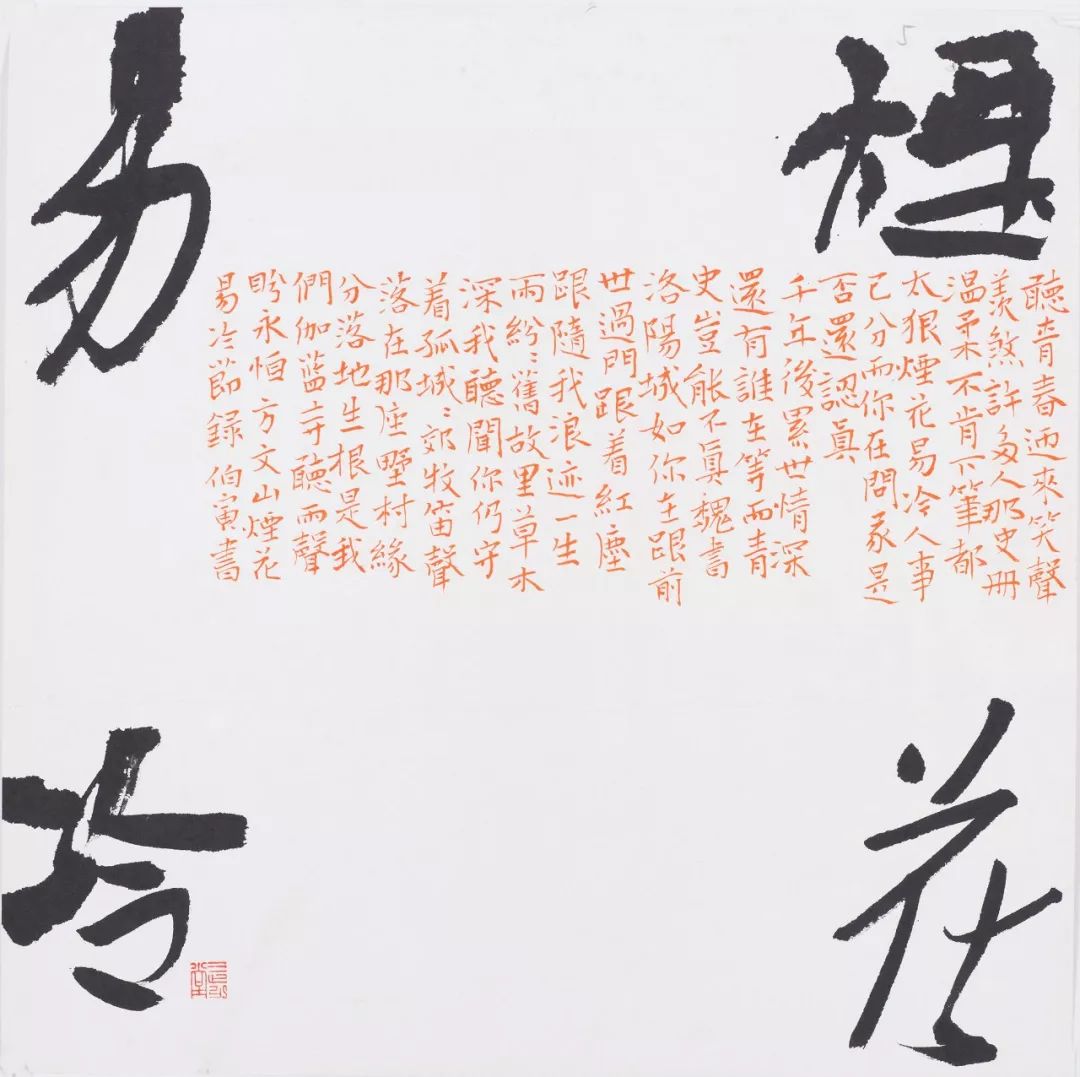 煙
花
易
冷
聽青春迎來笑聲
羨煞許多人那史冊
温柔不肯下筆都
太狠煙花易冷人事
已分而你在問我是
否還認眞
千年後累世情深
還有誰在等而青
史豈能不眞魏書
洛陽城如你在跟前
世過門跟着紅塵
跟隨我浪迹一生
雨紛〻舊故里草木
深我聽聞你仍守
着孤城〻郊牧笛聲
落在那座墅村緣
分落地生根是我
們伽藍寺聽雨聲
盼永恒方文山煙花
易冷節録伯寅書